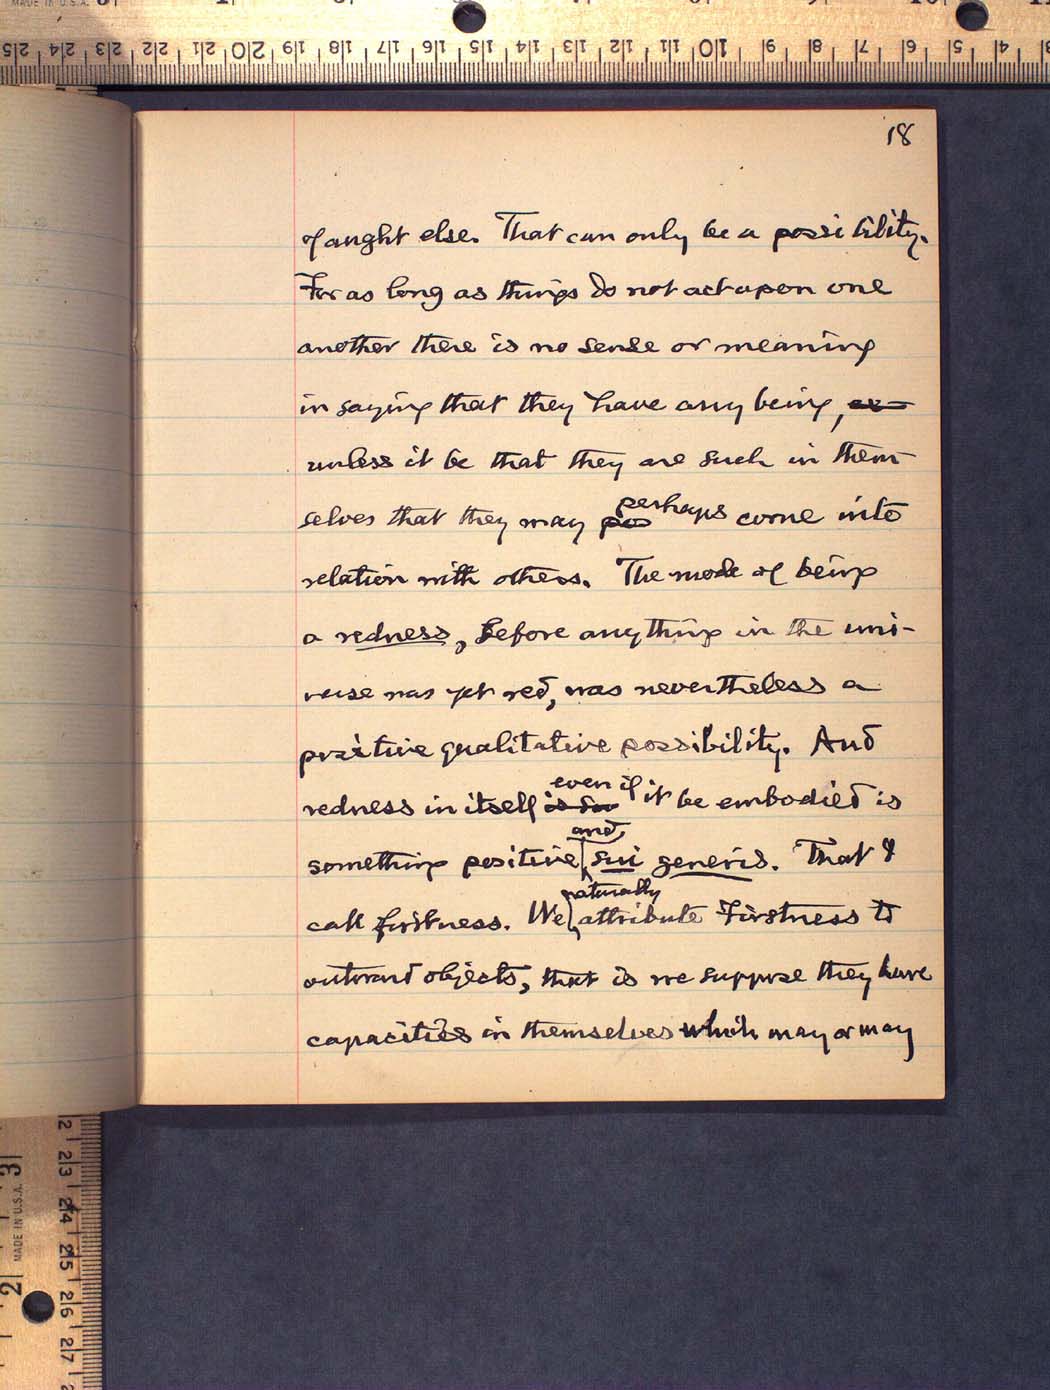 MADE IN U.S.A.
25 24 23 22 21 20 19 18 17 16 15 14 13 12 11 10 9 8 7 6 5 4 3
18
of aught else. That can only be a possibility.
For as long as things do not act upon one
another there is no sense or meaning
in saying that they have any being, or
unless it be that they are such in them-
selves that they may pos perhaps come into
relation with others. The mode of being
a redness, before anything in the uni-
verse was yet red, was nevertheless a
positive qualitative possibility. And
redness in itself even if it be embodied is
something positive and sui generis. That I
call firstness. We naturally attribute Firstness to
outward objects, that is we suppose they have
capacities in themselves which may or may
2 23 24 25 26 27
3 2
MADE IN U.S.A.